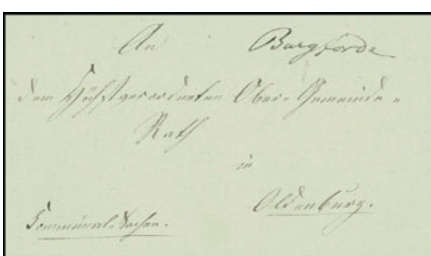 An Burgforde
dem Höchstverordneten Ober-Gemeinde-
Rath
in
Oldenburg.
Kommunal-Sachen.